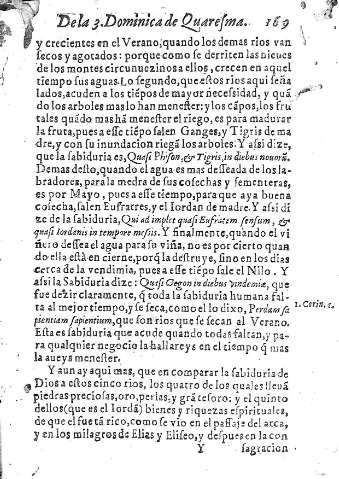 De la 3. Dominica de Quaresma. 169
y crecientes en el Verano, quando los demas rios van
secos y agotados: porque como se derriten las nieues
de los montes circunuezinos a ellos, crecen en aquel
tiempo sus aguas. Lo segundo, que estos rios aqui seña
lados, acuden a los tiẽpos de mayor necessidad, y quã
do los arboles mas lo han menester: y los cãpos, los fru
tales quãdo mas hã menester el riego, es para madurar
la fruta, pues a esse tiẽpo salen Ganges, y Tigris de ma
dre, y con su inundacion riegã los arboles. Y assi dize,
que la sabiduria es, Quasi Phison, & Tigris, in diebus nouorũ.
Demas desto, quando el agua es mas desseada de los la-
bradores, para la medra de sus cosechas y sementeras,
es por Mayo, pues a esse tiempo, para que aya buena
cosecha, salen Eufratres, y el Iordan de madre. Y assi di
ze de la sabiduria, Qui ad implet quasi Eufratem sensum, &
quasi Iordanis in tempore messis. Y finalmente, quando el vi
ñero dessea el agua para su viña, no es por cierto quan
do ella està en cierne, porq̃ la destruye, sino en los dias
cerca de la vendimia, pues a esse tiẽpo sale el Nilo. Y
assi la Sabiduria dize: Quasi Gegon in diebus vindemiæ, que
fue dezir claramente, q̃ toda la sabiduria humana fal-
ta al mejor tiempo, y se seca, como el lo dixo, Perdam sa
pientiam sapientium, que son rios que se secan al Verano.
1. Corin. c.
Esta es sabiduria que acude quando todas faltan, y pa
ra qualquier negocio la hallareys en el tiempo q̃ mas
la aueys menester.
Y aun ay aqui mas, que en comparar la sabiduria de
Dios a estos cinco rios, los quatro de los quales lleuã
piedras preciosas, oro, perlas, y grã tesoro; y el quinto
dellos (que es el Iordã) bienes y riquezas espirituales,
de que el fue tã rico, como se vio en el passaje del arca,
y en los milagros de Elias y Eliseo, y despues en la con
Y sagracion